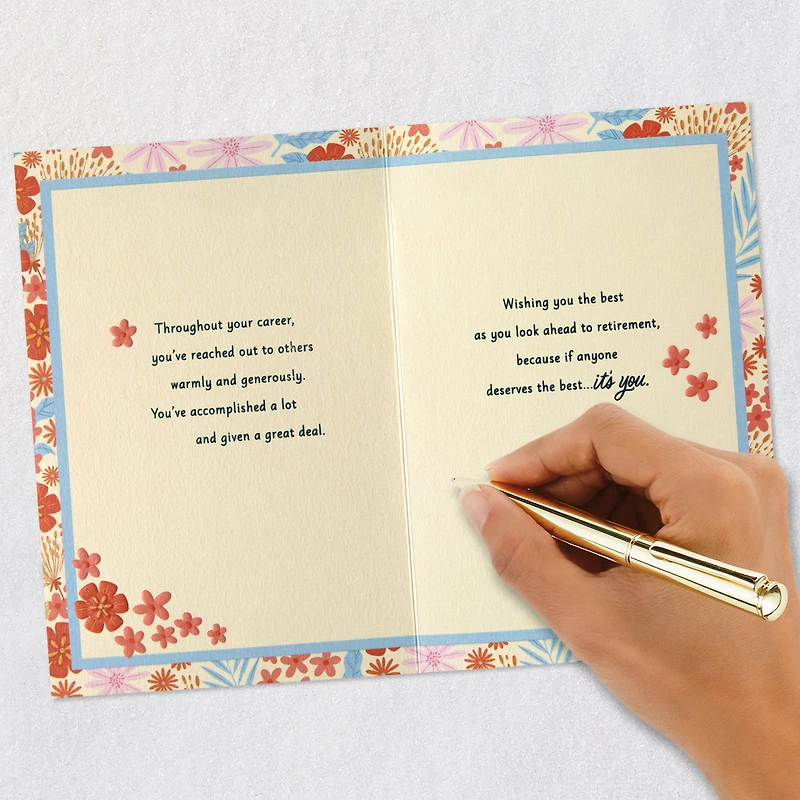 Throughout your career,
you've reached out to others
warmly and generously.
You've accomplished a lot
and given a great deal.
Wishing you the best
as you look ahead to retirement,
because if anyone
deserves the best...it's you.